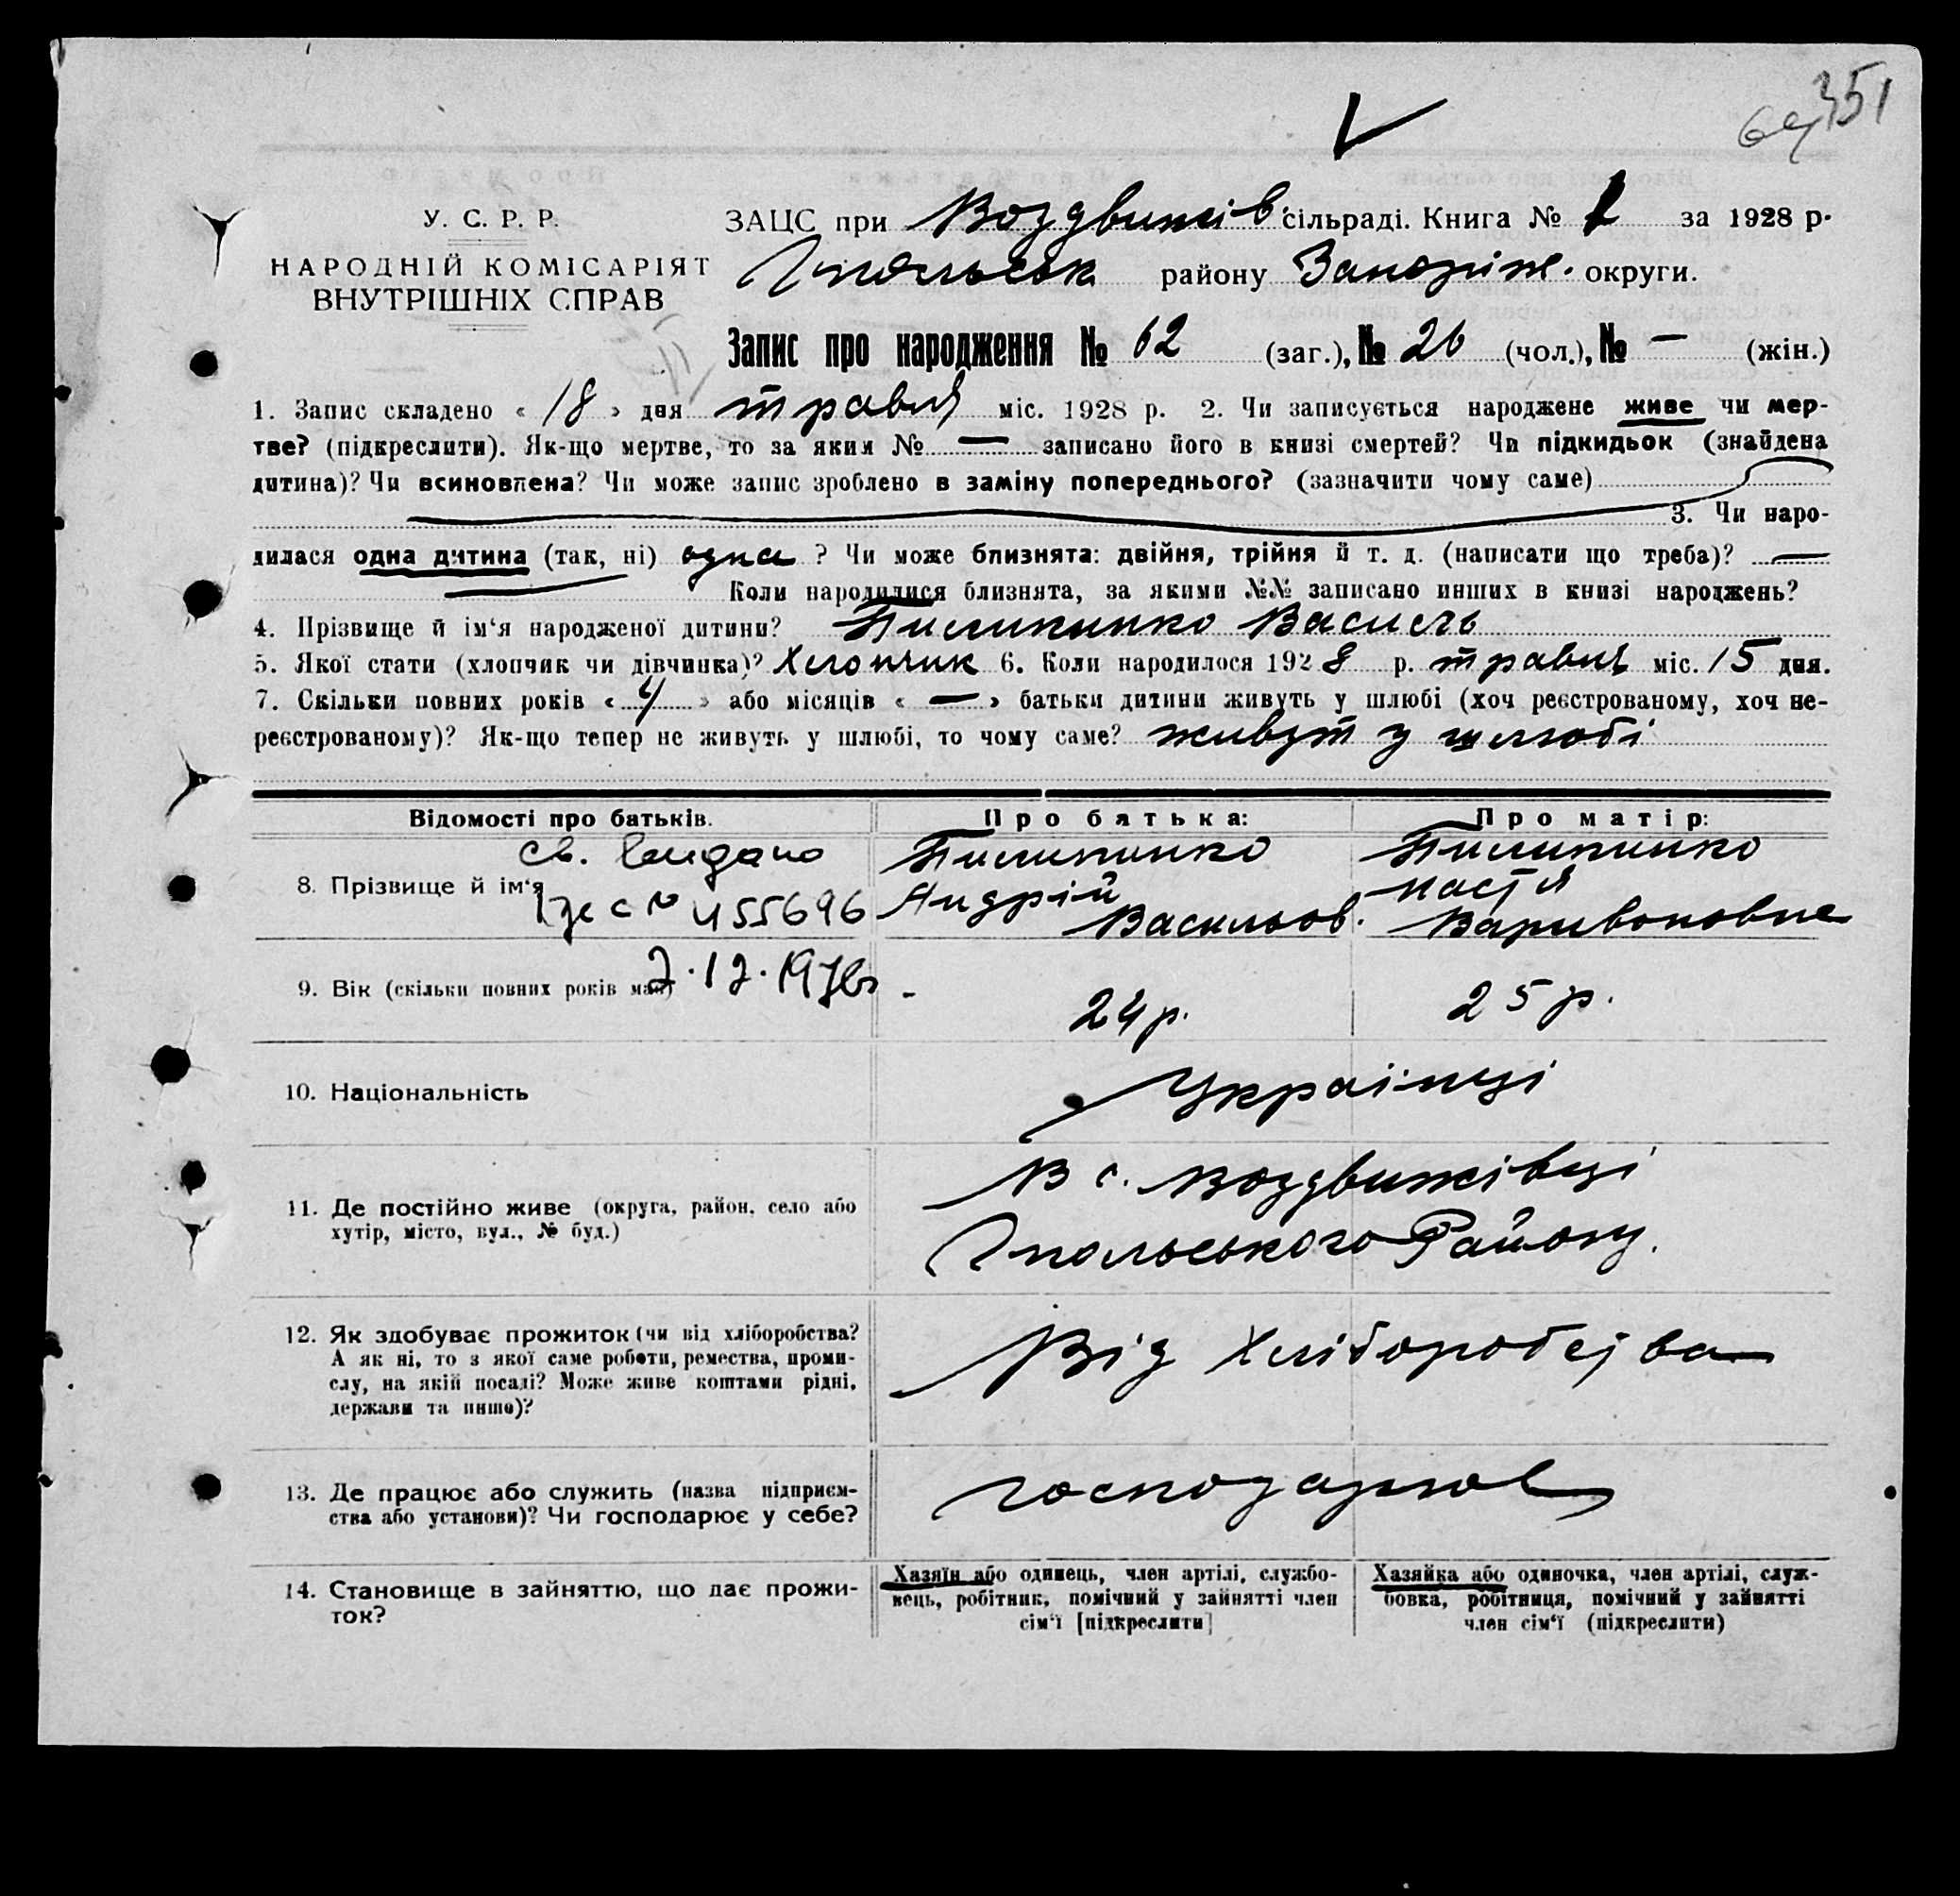 351
У. С. Р. Р.
НАРОДНІЙ КОМІСАРІЯТ
ВНУТРІШНІХ СПРАВ
ЗАЦС при Воздвижів. сільраді. Книга № 1 за 1928 р.
Гпольськ району Запоріж. округи.
Запис про народження № 62 (заг.), № 26 (чол.), № — (жін.)
1. Запис складено « 18 » дня травня міс. 1928 р. 2. Чи записується народжене живе чи мер-
тве? (підкреслити). Як-що мертве, то за яким № — записано його в книзі смертей? Чи підкидьок (знайдена
дитина)? Чи всиновлена? Чи може запис зроблено в заміну попереднього? (зазначити чому саме)
3. Чи наро-
дилася одна дитина (так, ні) одна ? Чи може близнята: двійня, трійня й т. д. (написати що треба)? —
Коли народилися близнята, за якими №№ записано инших в книзі народжень?
4. Прізвище й ім‘я народженої дитини? Пилипинко Василь
5. Якої стати (хлопчик чи дівчинка)? Хлопчик 6. Коли народилося 1928 р. травня міс. 15 дня.
7. Скільки повних років « 4 » або місяців « — » батьки дитини живуть у шлюбі (хоч реєстрованому, хоч не-
реєстрованому)? Як-що тепер не живуть у шлюбі, то чому саме? живут у шлюбі
Відомості про батьків.
Про батька:
Про матір:
св.
№ 455696
8. Прізвище й ім‘я
Пилипинко
Андрій
Васильов.
Пилипинко
Настя
Варивоновна
9. Вік (скільки повних років має)
24 р.
25 р.
10. Національність
Українці
11. Де постійно живе (округа, район, село або
хутір, місто, вул., № буд.)
В с. Воздвижівці
Гпольського Району.
12. Як здобуває прожиток (чи від хліборобства?
А як ні, то з якої саме роботи, ремества, проми-
слу, на якій посаді? Може живе коштами рідні,
держави та инше)?
Від Хліборобства
13. Де працює або служить (назва підприєм-
ства або установи)? Чи господарює у себе?
господарює
14. Становище в зайняттю, що дає прожи-
ток?
Хазяїн або одинець, член артілі, службо-
вець, робітник, помічний у зайнятті член
сім‘ї [підкреслити]
Хазяйка або одиночка, член артілі, служ-
бовка, робітниця, помічний у зайнятті
член сім‘ї (підкреслити)